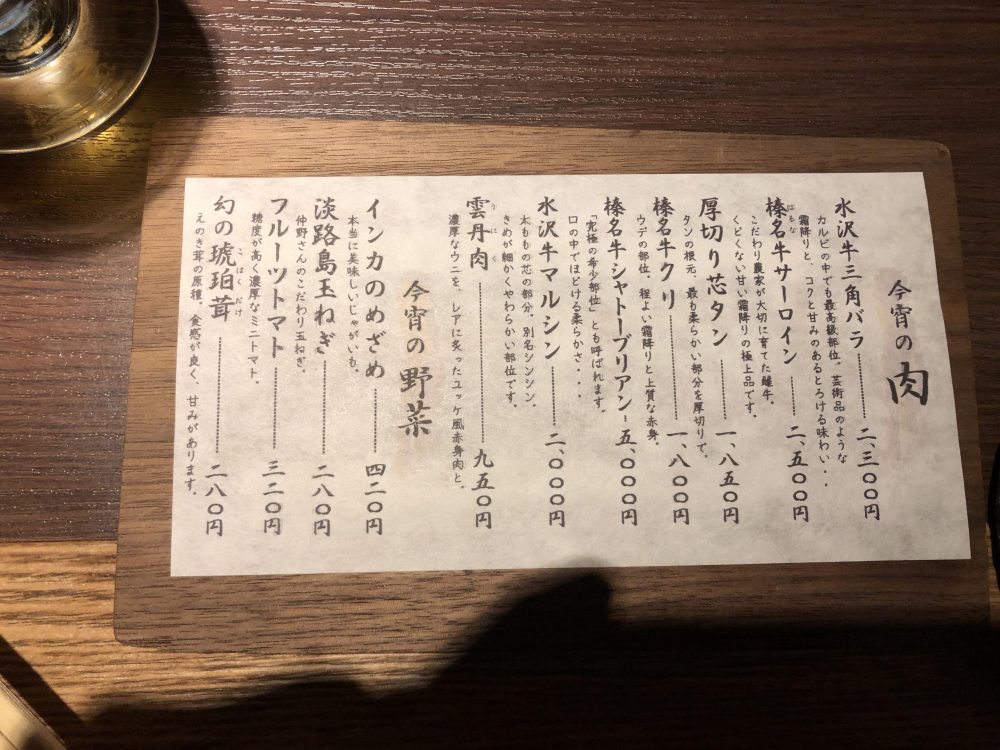 今宵の肉
水沢牛三角バラ 二、三〇〇円
カルビの中でも最高級部位。芸術品のような
霜降りと、コクと甘みのあるとろける味わい・・
榛名牛サーロイン 二、五〇〇円
はるな
こだわり農家が大切に育てた雌牛。
くどくない甘い霜降りの極上品です。
厚切り芯タン 一、八五〇円
タンの根元、最も柔らかい部分を厚切りで。
榛名牛クリ 一、八〇〇円
ウデの部位。程よい霜降りと上質な赤身
榛名牛シャトーブリアン 五、〇〇〇円
「究極の希少部位」とも呼ばれます。
口の中でほどける柔らかさ・・・
水沢牛マルシン 二、〇〇〇円
太ももの芯の部分。別名シンシン。
きめが細かくやわらかい部位です。
雲丹肉 九五〇円
うに にく
濃厚なウニを、レアに炙ったユッケ風赤身肉と。
今宵の野菜
インカのめざめ 四二〇円
本当に美味しいじゃがいも。
淡路島玉ねぎ 二八〇円
仲野さんのこだわり玉ねぎ。
フルーツトマト 三二〇円
糖度が高く濃厚なミニトマト。
幻の琥珀茸 二八〇円
こはくだけ
えのき茸の原種。食感が良く、甘みがあります。